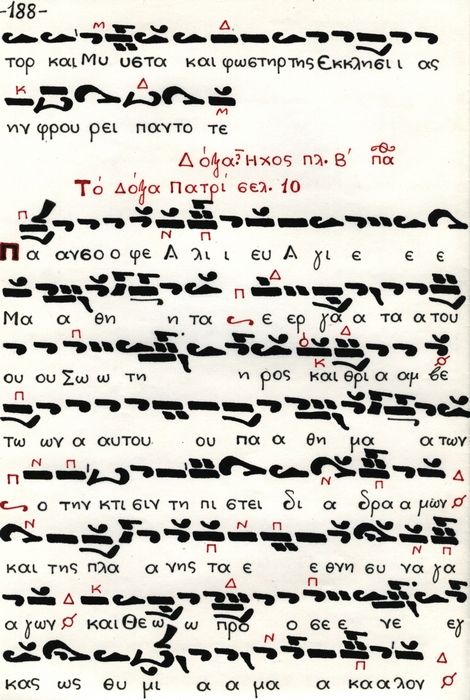 -188-
τορ και Μυ υστα και φωστηρ της Εκκλησι ι ας
ην φρου ρει παντο τε
Δόξα Ἦχος πλ. Β΄ πα
Τό Δόξα Πατρί σελ. 10
Πα ανσο ο φε Α λι ι ευ Α γι ε ε ε
Μα α θη η τα ε ερ γα α τα α του
ου ου Σω ω τη η ρος και θρι α αμ βε
τω ων α αυτου ου πα α θη μα α των
ο την κτι σιν τη πι στει δι α δρα α μων
και της πλα α νης τα ε ε θνη συ να γα
α γων και Θε ω ω προ ο σε ε νε εγ
κας ως θυ μι α α μα α κα αλον